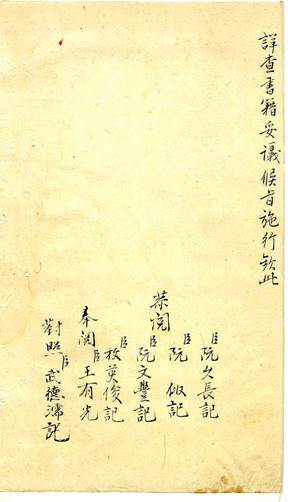 詳查書籍妥議候旨施行欽此
臣阮久長記
臣阮記
恭閱
臣阮文豐記
臣枚英俊記
奉閱臣王有光
對照臣武德濡記